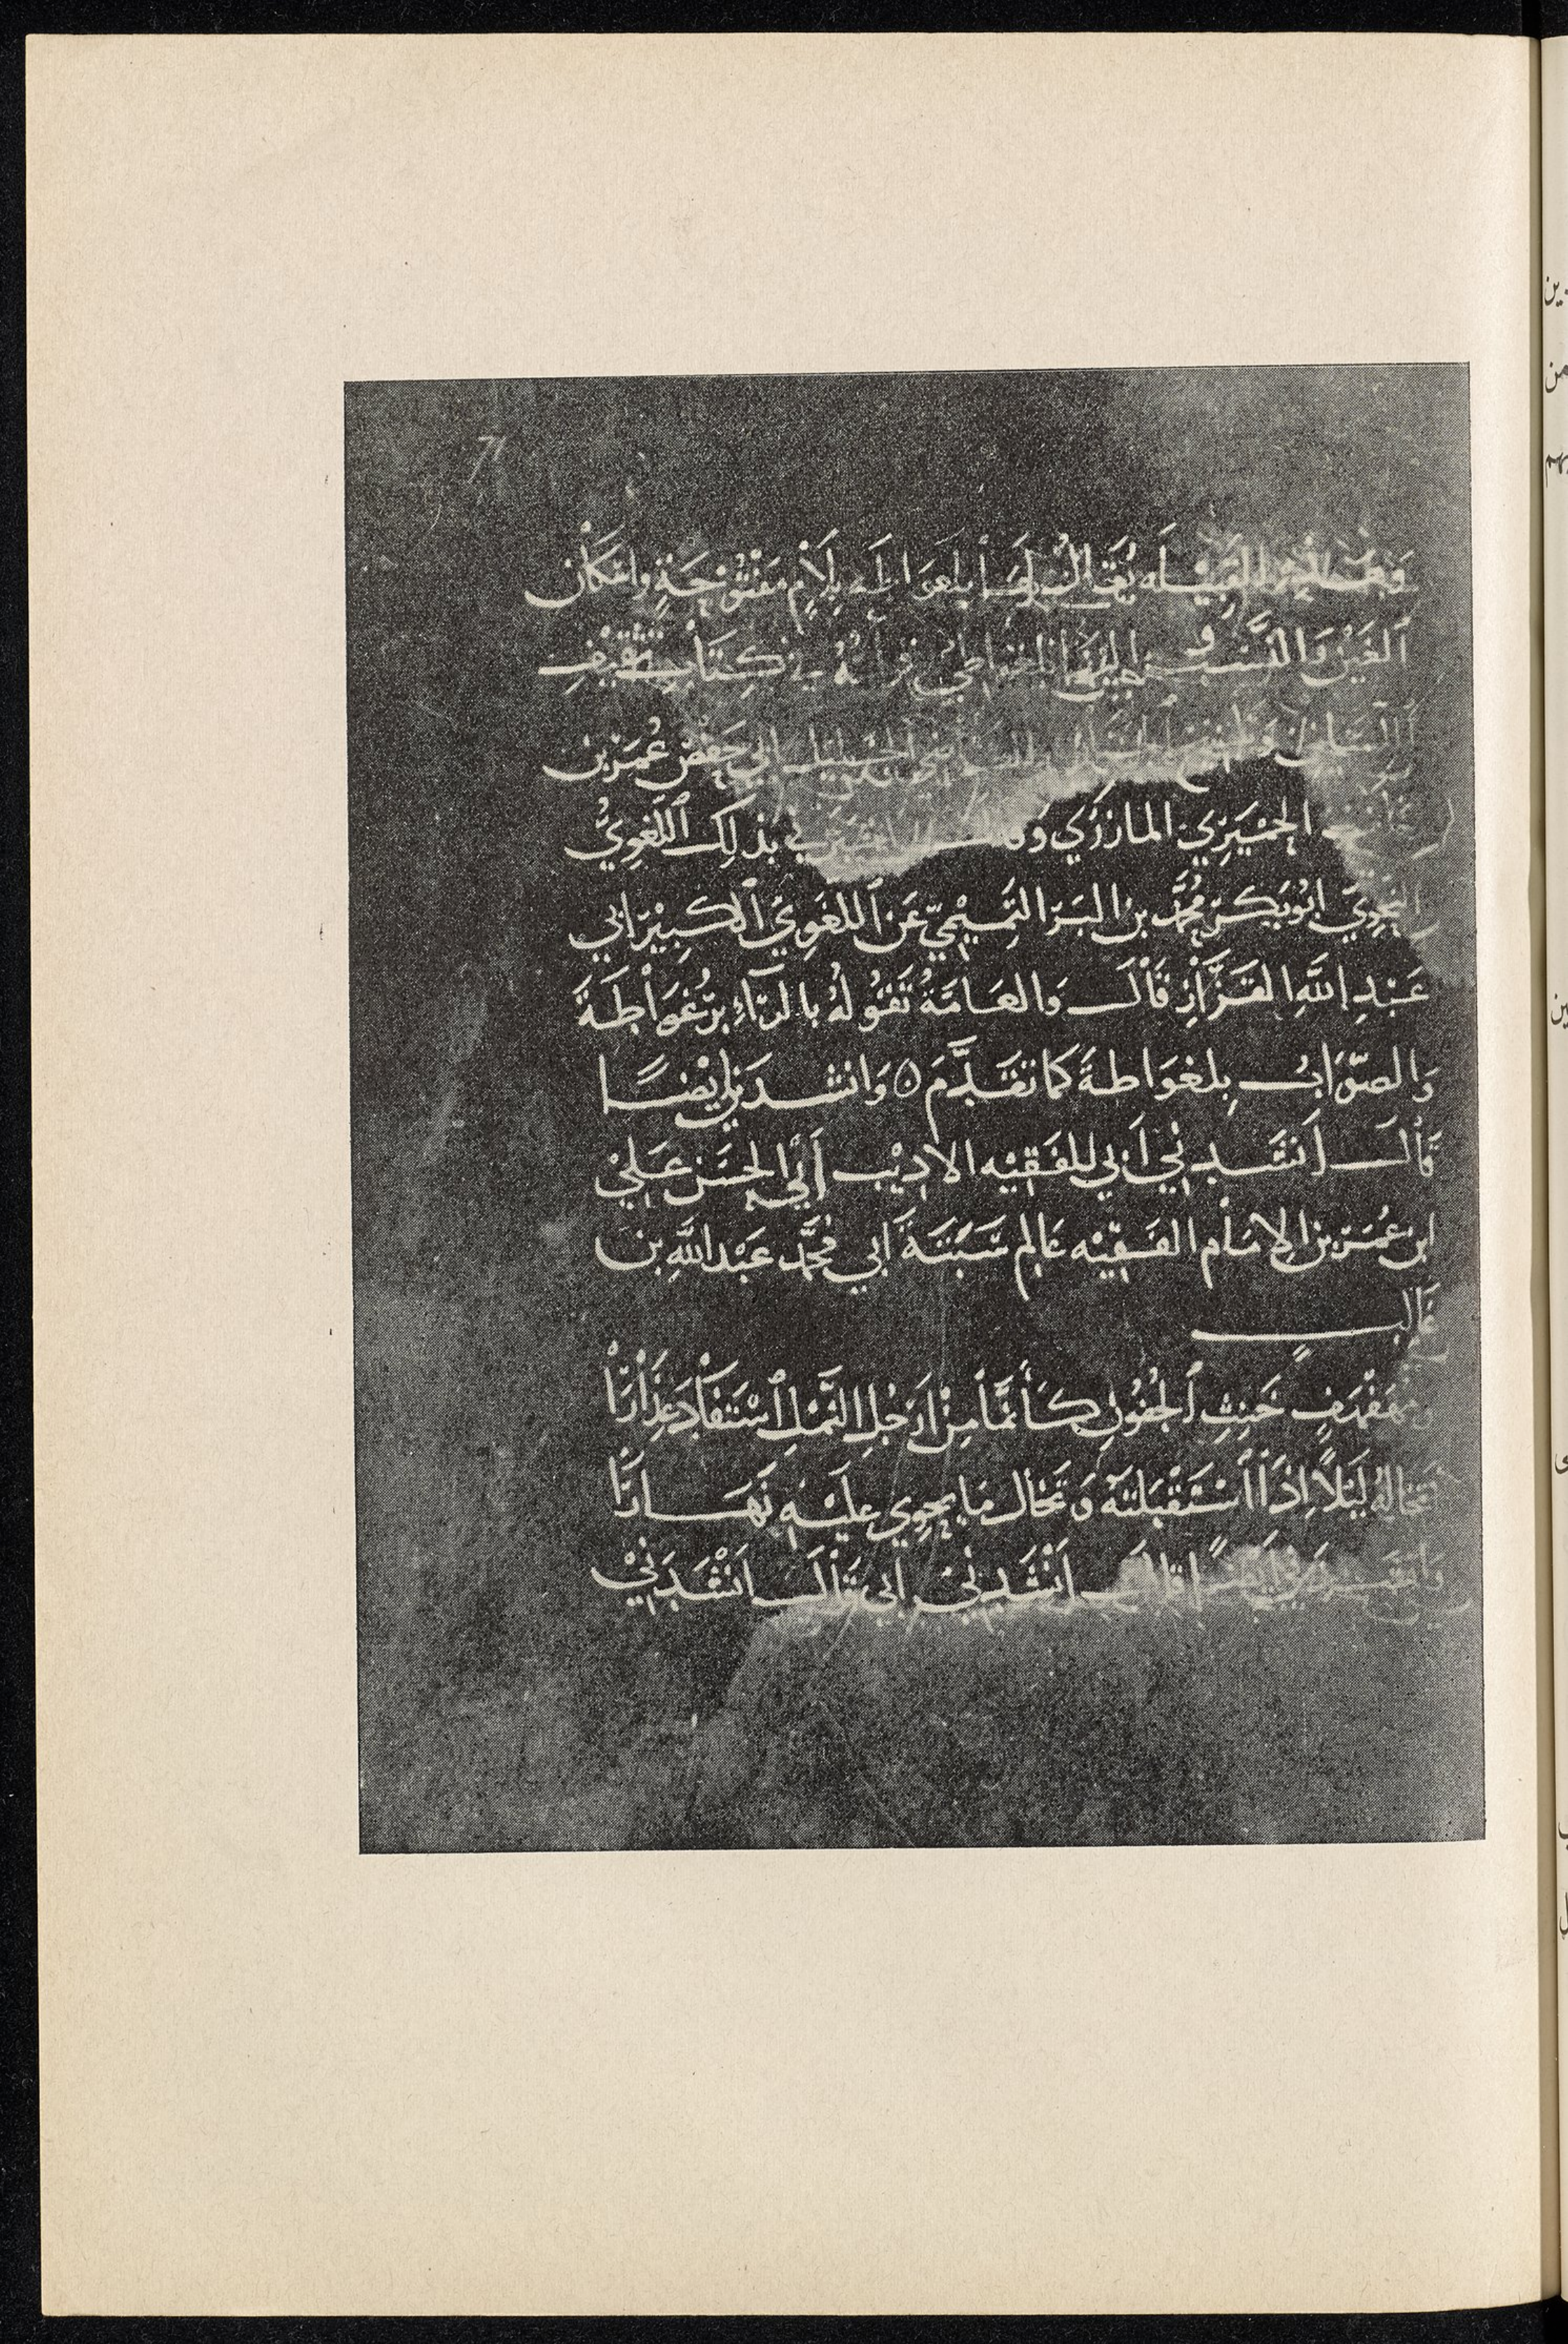 71
القبيله يقال لها بلغواطه بلام مفتوحة واسكان
الغين والنسب اليها في كتاب تثقيف
اللسان ابي حفص عمر بن
الحميري المازري بذلك اللغوي
النحوي ابو بكر محمد بن البر التميمي عن اللغوي الكبير ابي
عبد الله القزاز قال والعامة تقوله بالراء برغواطة
والصواب بلغواطة كما تقدم ٥ وانشدني ايضا
قال انشدني ابي للفقيه الاديب ابي الحسن علي
ابن عمر بن الامام الفقيه عالم سبتة ابي محمد عبد الله بن
غالب
ومهفهف خنث الجفون كأنما من ارجل النمل استفاد عذارا
تخاله ليلا اذا استقبلته وتخال ما يحوي عليه نهارا
وانشدني ايضا قال انشدني ابي قال انشدني